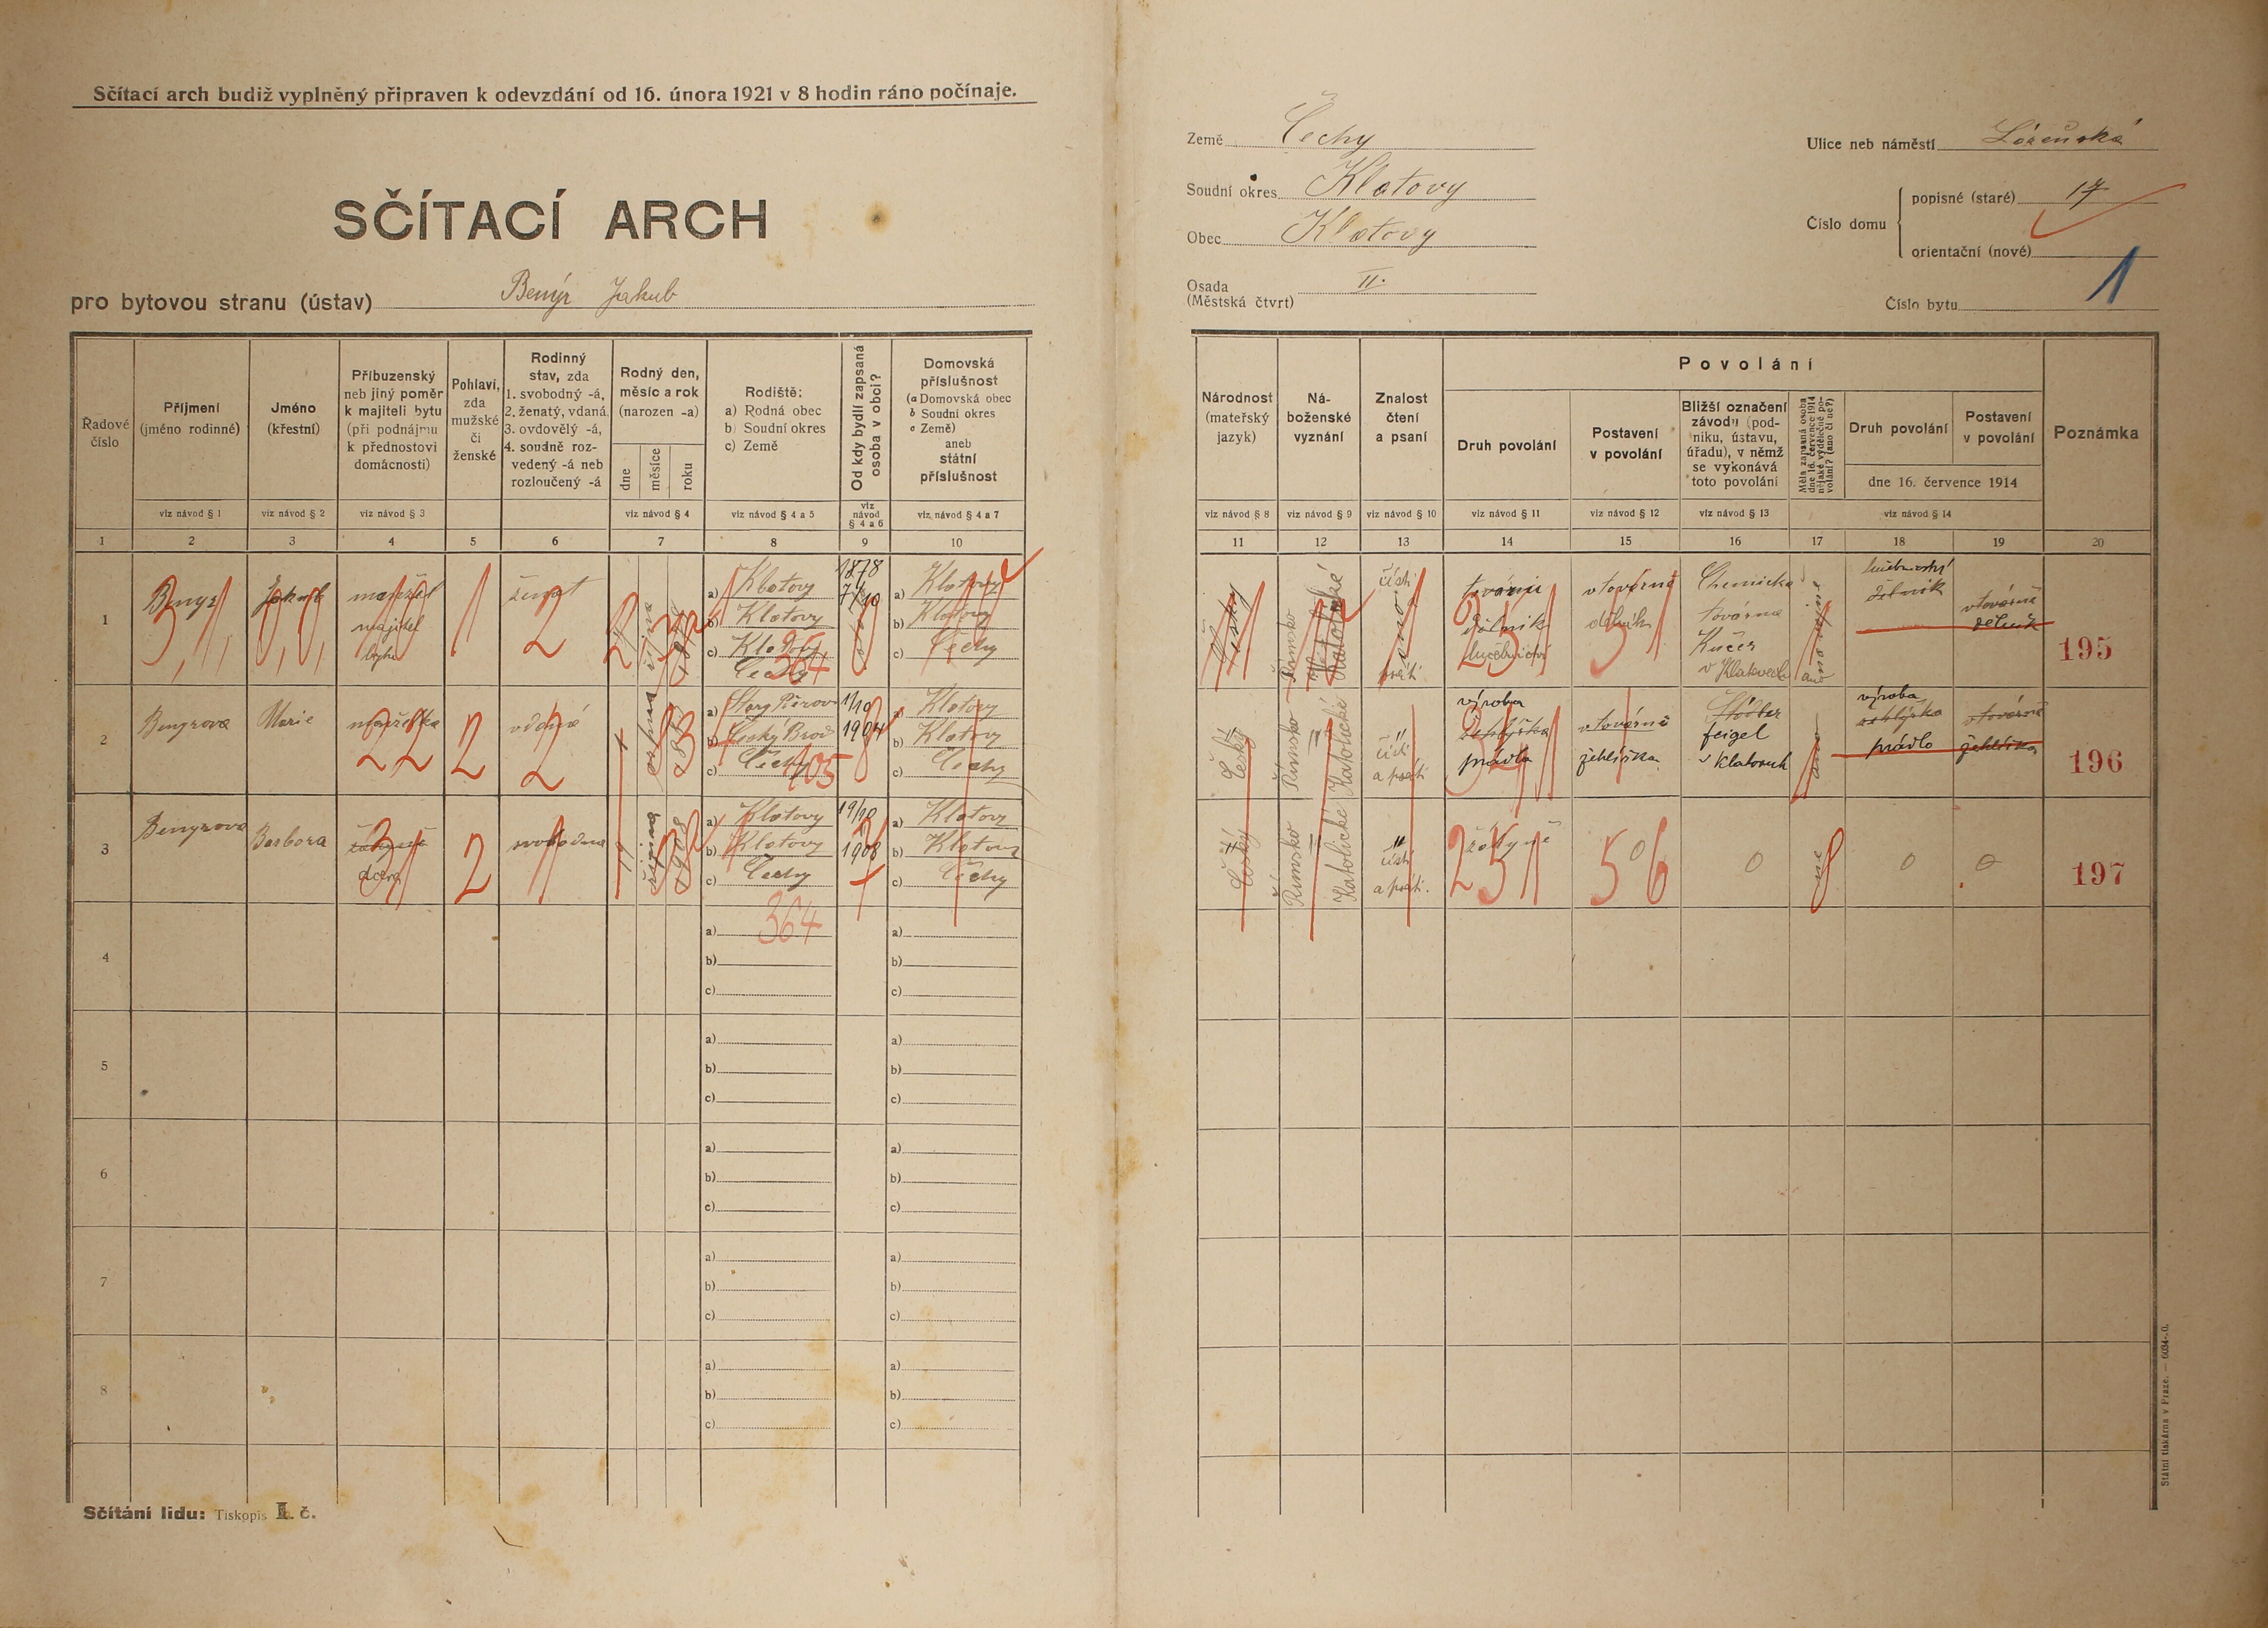 Sčítací arch budiž vyplněný připraven k odevzdání od 16. února 1921 v 8 hodin ráno počínaje.
SČÍTACÍ ARCH
pro bytovou stranu (ústav) Benýr Jakub
Země Čechy
Soudní okres Klatovy
Obec Klatovy
Osada
(Městská čtvrt) II.
Ulice neb náměstí
Číslo domu
popisné (staré) 17
orientační (nové)
Číslo bytu 1
Řadové
číslo
Příjmení
(jméno rodinné)
viz návod § 1
Jméno
(křestní)
viz návod § 2
Příbuzenský
neb jiný poměr
k majiteli bytu
(při podnájmu
k přednostovi
domácnosti)
viz návod § 3
Pohlaví,
zda
mužské
či
ženské
Rodinný
stav, zda
1. svobodný -á,
2. ženatý, vdaná
3. ovdovělý -á,
4. soudně roz-
vedený -á neb
rozloučený -á
Rodný den,
měsíc a rok
(narozen -a)
dne
měsíce
roku
viz návod § 4
Rodiště:
a) Rodná obec
b) Soudní okres
c) Země
viz návod § 4 a 5
Od kdy bydlí zapsaná
osoba v obci?
viz
návod
§ 4 a 6
Domovská
příslušnost
(a Domovská obec
b Soudní okres
c Země)
aneb
státní
příslušnost
viz návod § 4 a 7
Národnost
(mateřský
jazyk)
viz návod § 8
Ná-
boženské
vyznání
viz návod § 9
Znalost
čtení
a psaní
viz návod § 10
Povolání
Druh povolání
viz návod § 11
Postavení
v povolání
viz návod § 12
Bližší označení
závodu (pod-
niku, ústavu,
úřadu), v němž
se vykonává
toto povolání
viz návod § 13
Měla zapsaná osoba
dne 16. července 1914
nějaké výdělečné po-
volání? (ano či ne?)
Druh povolání
Postavení
v povolání
dne 16. července 1914
viz návod § 14
Poznámka
1 2 3 4 5 6 7 8 9 10 11 12 13 14 15 16 17 18 19 20
1 Benyr Jakub manžel
majitel
bytu
1
ženat
2
a) Klatovy
b) Klatovy
c) Klatovy
Čechy
364
1878
a) Klatovy
b) Klatovy
c) Čechy
Český
Římsko
Katolické
čísti
ano
psáti
tovární
dělník
v továrně
dělník
Chemická
továrna
Kučer
v Klatovech
ano
dělník
v továrně
dělník
195
2 Benyrova Marie manželka
22
2
vdaná
2
srpna
a) Stary Přerov
b) Český Brod
c) Čechy
405
1/10
1904
a) Klatovy
b) Klatovy
c) Čechy
Český
Římsko
Katolické
čísti
a psáti
výroba
prádla
v továrně
žehlířka
feigel
v Klatovech
ano
výroba
prádlo
v továrně
žehlířka
196
3 Benyrova Barbora
dcera
31
2
svobodna
1
října
1908
a) Klatovy
b) Klatovy
c) Čechy
364
19/10
1908
a) Klatovy
b) Klatovy
c) Čechy
Český
Římsko
Katolické
čísti
a psáti.
žákyně
251
56
0
ne
0
0
197
4 a) b) c) a) b) c)
5 a) b) c) a) b) c)
6 a) b) c) a) b) c)
7 a) b) c) a) b) c)
8 a) b) c) a) b) c)
Sčítání lidu: Tiskopis I. č.
Státní tiskárna v Praze. — 6034-.0.